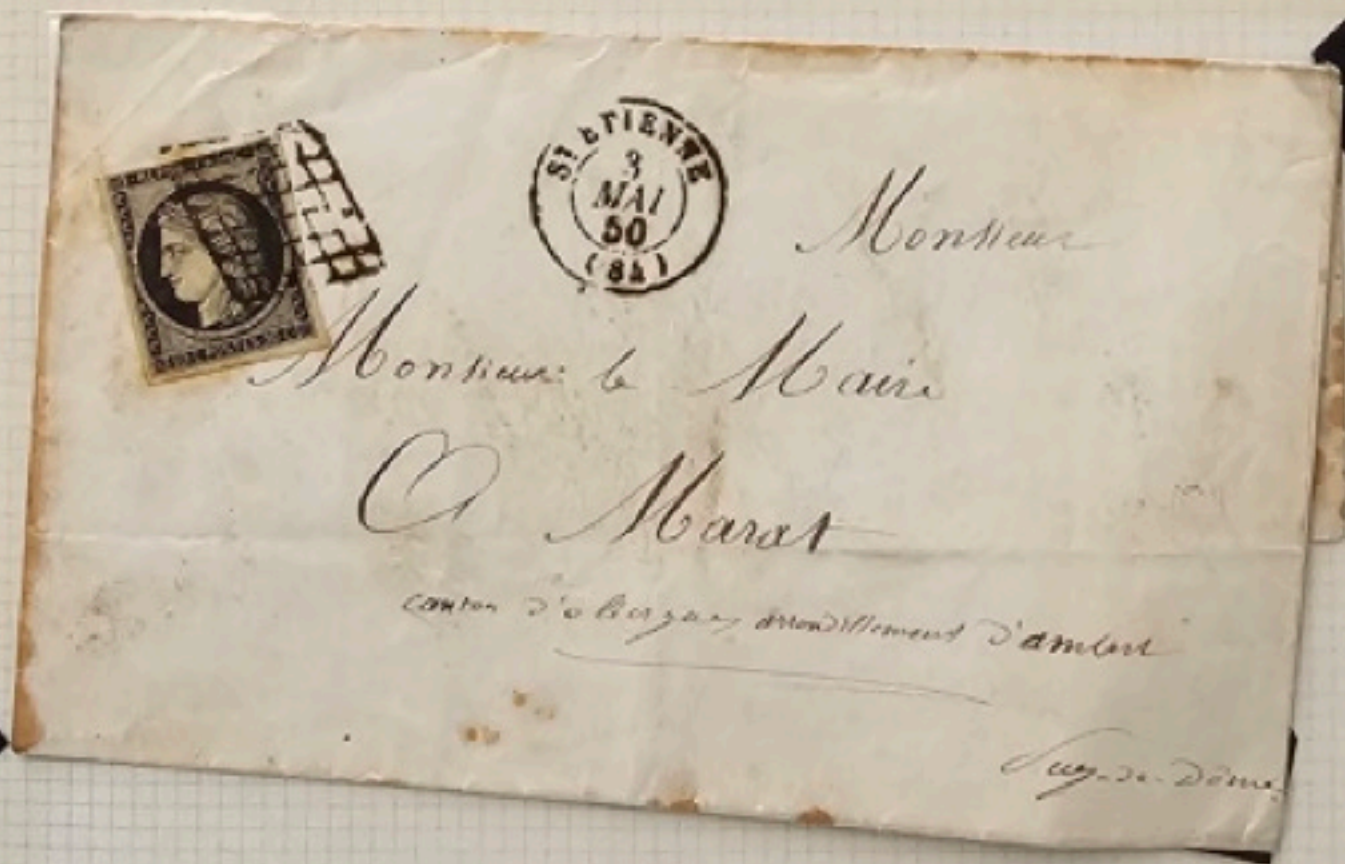 St ETIENNE
3
MAI
50
(84)
Monsieur
Monsieur le Maire
A Marat
canton d'olliergues arrondissement d'ambert
Puy-de-Dôme